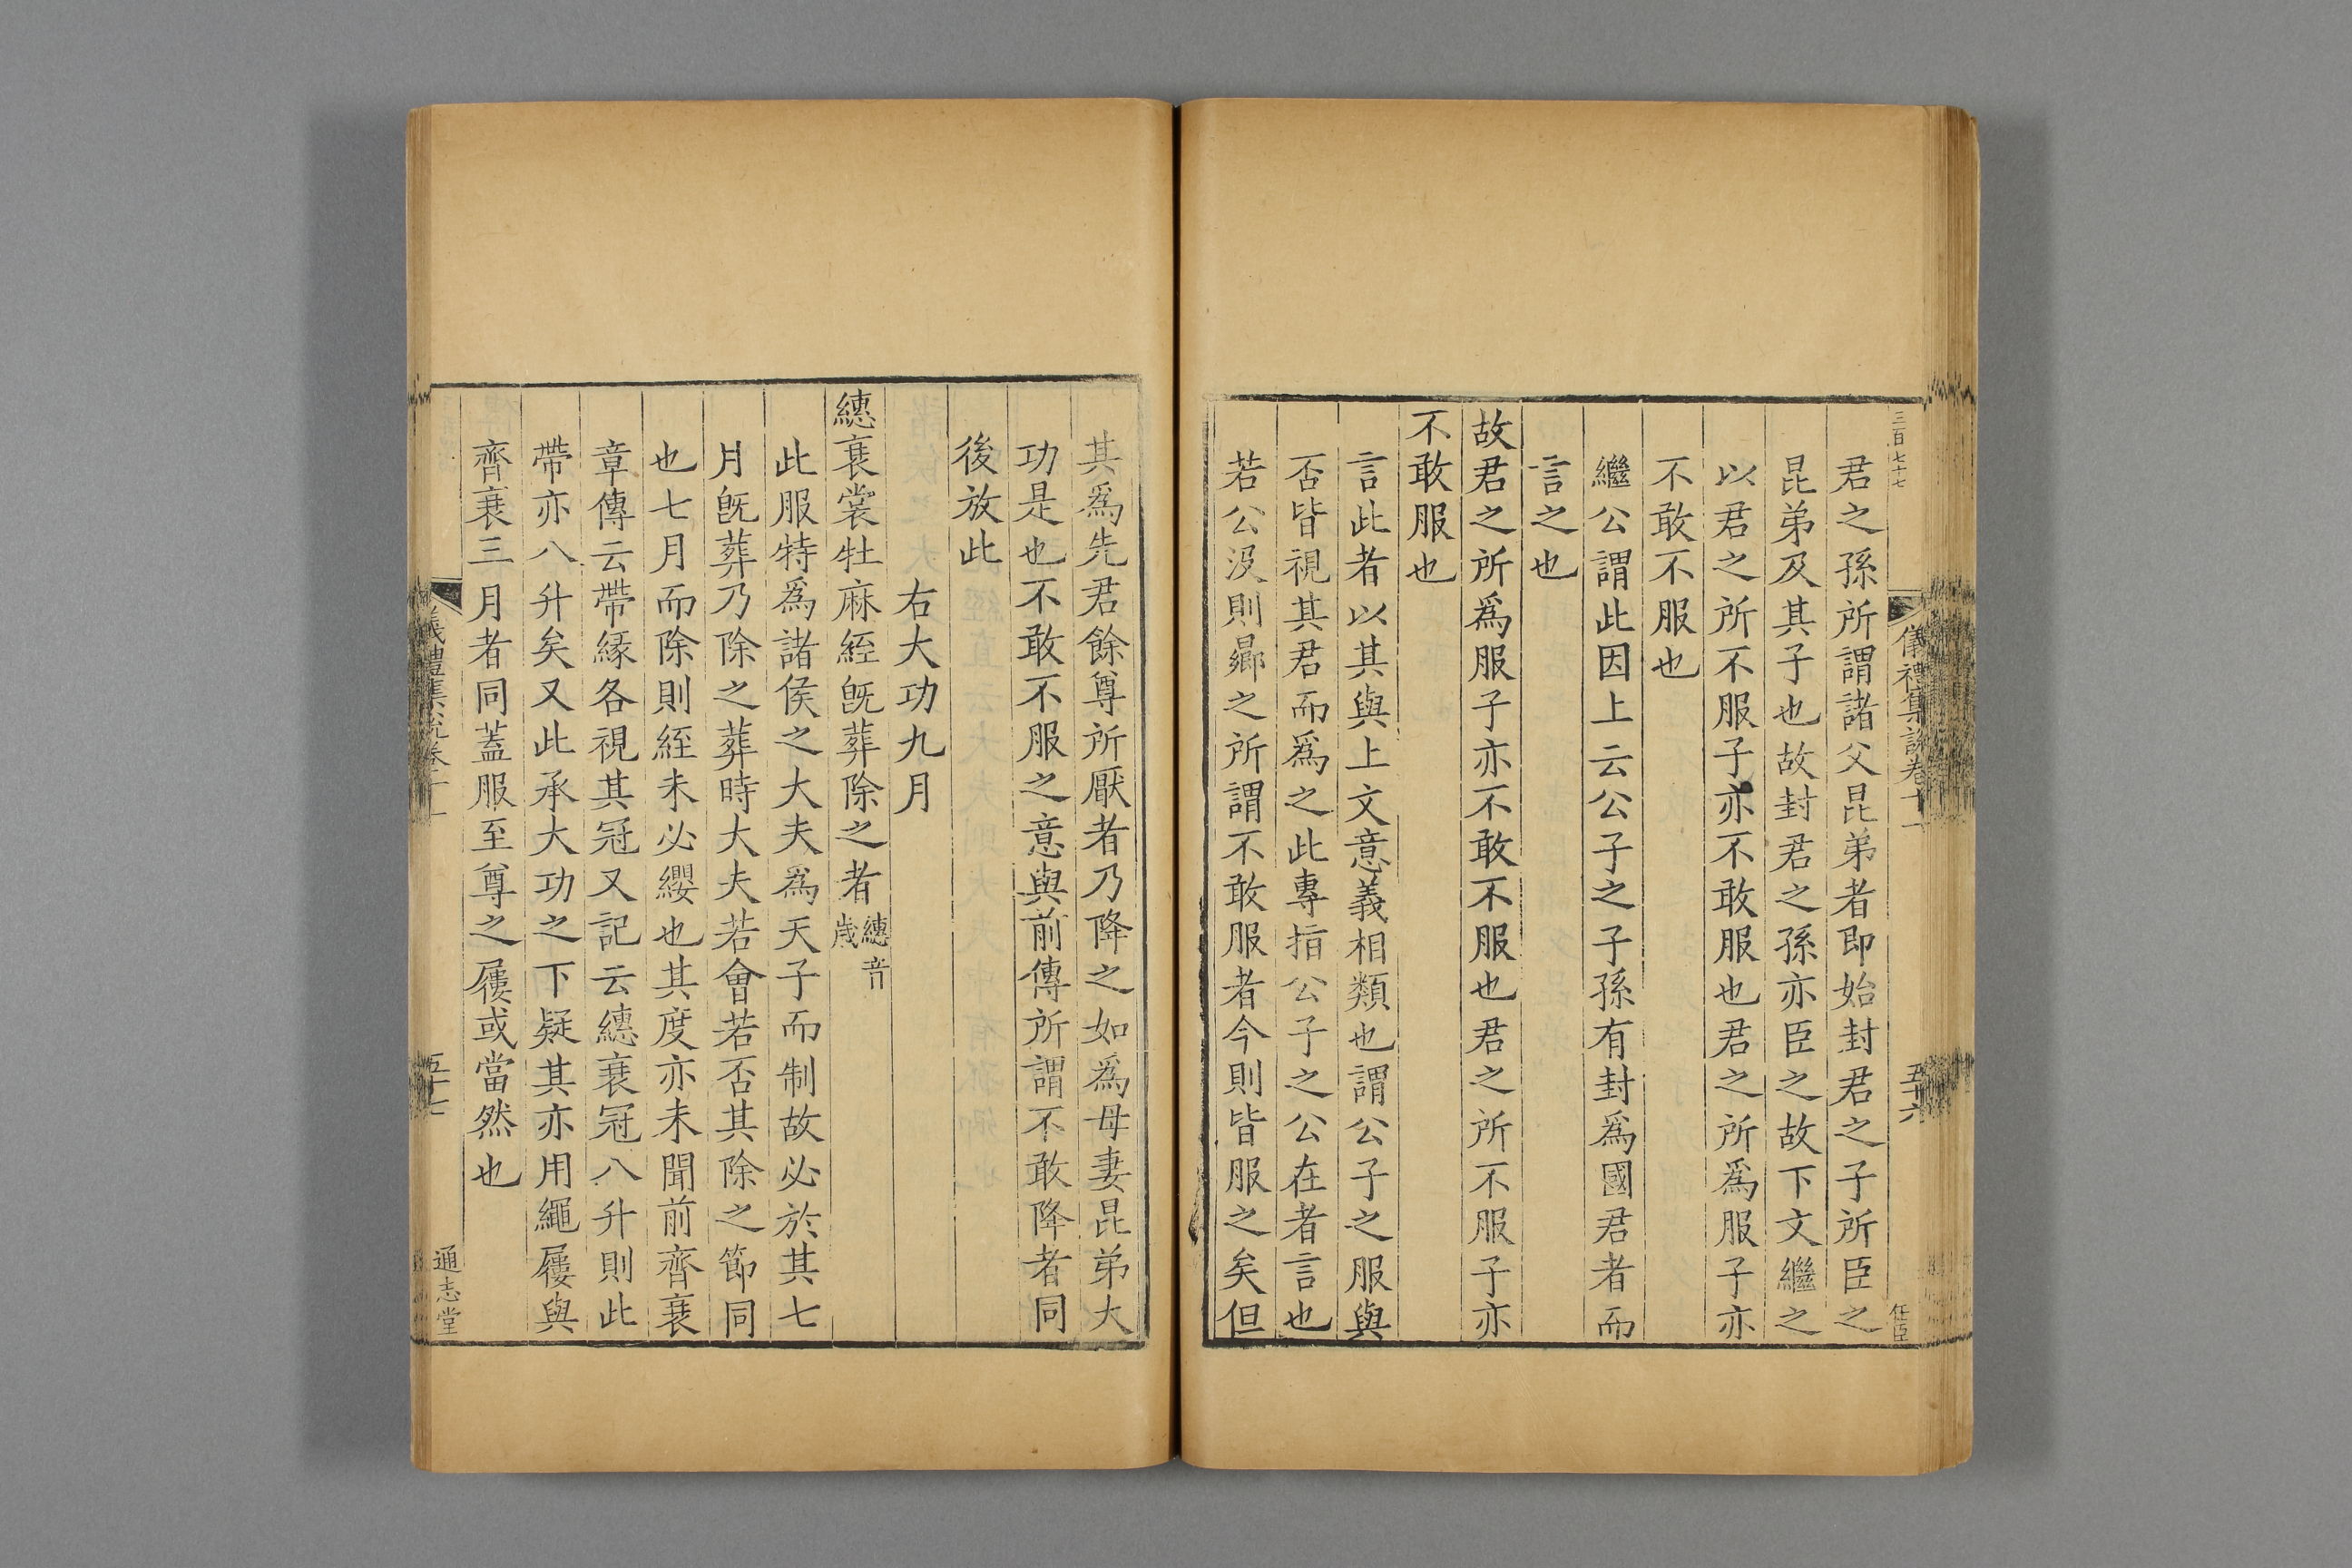 三百七十七
儀禮集說卷十一
五十六
任臣
君之孫所謂諸父昆弟者即始封君之子所臣之
昆弟及其子也故封君之孫亦臣之故下文繼之
以君之所不服子亦不敢服也君之所爲服子亦
不敢不服也
繼公謂此因上云公子之子孫有封爲國君者而
言之也
故君之所爲服子亦不敢不服也君之所不服子亦
不敢服也
言此者以其與上文意義相類也謂公子之服與
否皆視其君而爲之此專指公子之公在者言也
若公沒則曏之所謂不敢服者今則皆服之矣但
其爲先君餘尊所厭者乃降之如爲母妻昆弟大
功是也不敢不服之意與前傳所謂不敢降者同
後放此
右大功九月
繐衰裳牡麻絰旣葬除之者繐音歲
此服特爲諸侯之大夫爲天子而制故必於其七
月旣葬乃除之葬時大夫若會若否其除之節同
也七月而除則絰未必纓也其度亦未聞前齊衰
章傳云帶緣各視其冠又記云繐衰冠八升則此
帶亦八升矣又此承大功之下疑其亦用繩屨與
齊衰三月者同蓋服至尊之屨或當然也
儀禮集說卷十一
五十七
通志堂